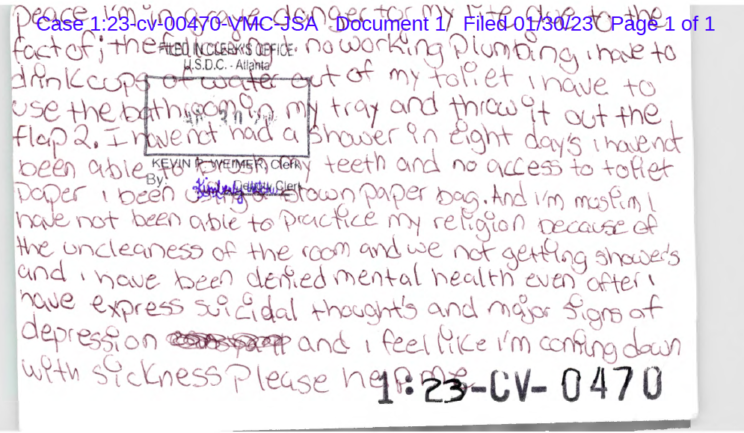 Case 1:23-cv-00470-VMC-JSA Document 1 Filed 01/30/23 Page 1 of 1
peace i'm in danger for my life due to the
fact of; the no working plumbing, i have to
FILED IN CLERK'S OFFICE
U.S.D.C. - Atlanta
drink cups of water out of my toliet i have to
use the bathroom in my tray and throw it out the
flap 2. I have not had a shower in eight day's i havent
KEVIN P. WEIMER, Clerk
been able to teeth and no access to toliet
By: Deputy Clerk
paper i been using a brown paper bag. And i'm muslim I
have not been able to practice my religion because of
the uncleaness of the room and we not getting shower's
and i have been denied mental health even after i
have express suicidal thought's and major signs of
depression and i feel like i'm coming down
with sickness Please help me
1:23-CV-0470